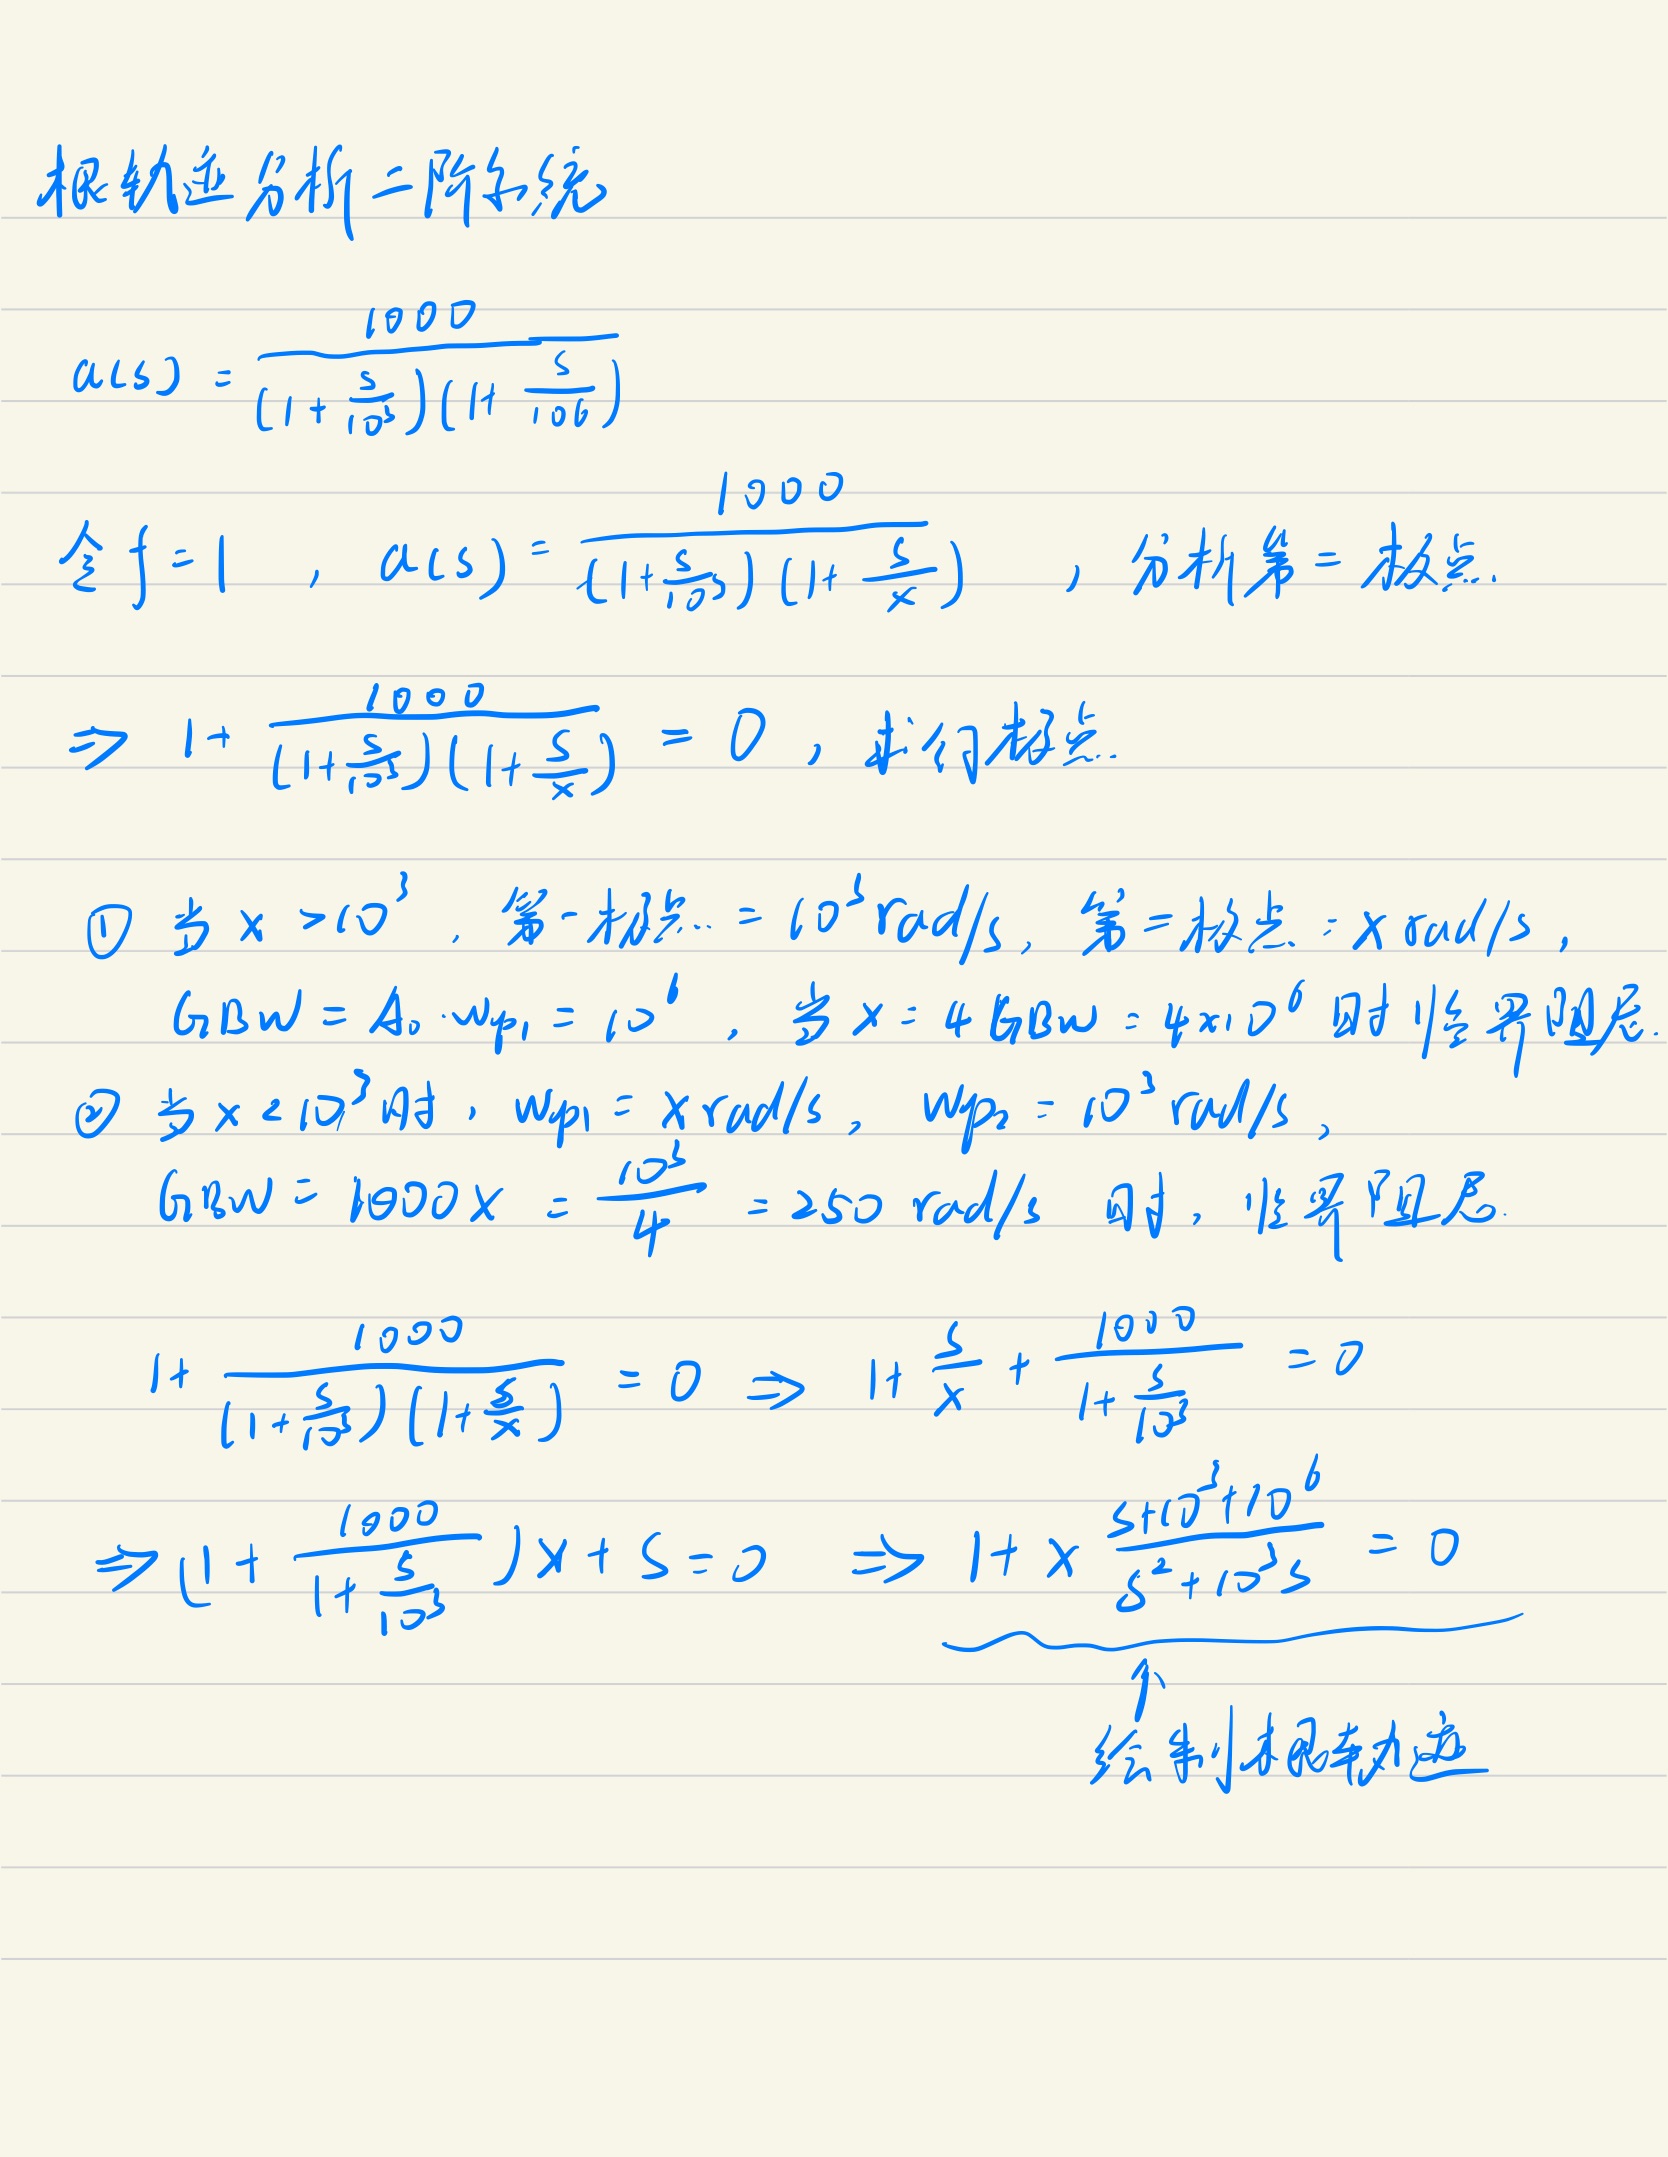 根轨迹分析二阶系统
a(s) = 1000 / ((1 + s/10³)(1 + s/10⁶))
令 f = 1 , a(s) = 1000 / ((1 + s/10³)(1 + s/x)) , 分析第二极点.
⇒ 1 + 1000 / ((1 + s/10³)(1 + s/x)) = 0 , 求得极点.
① 当 x > 10³ , 第一极点 = 10³ rad/s, 第二极点 = x rad/s ,
GBW = A₀·Wp₁ = 10⁶ , 当 x = 4GBW = 4×10⁶ 时临界阻尼.
② 当 x < 10³ 时 , Wp₁ = x rad/s, Wp₂ = 10³ rad/s ,
GBW = 1000x = 10³/4 = 250 rad/s 时, 临界阻尼.
1 + 1000 / ((1 + s/10³)(1 + s/x)) = 0 ⇒ 1 + s/x + 1000 / (1 + s/10³) = 0
⇒ (1 + 1000 / (1 + s/10³))x + s = 0 ⇒ 1 + x (s+10³+10⁶)/(s²+10³s) = 0
↑
绘制根轨迹